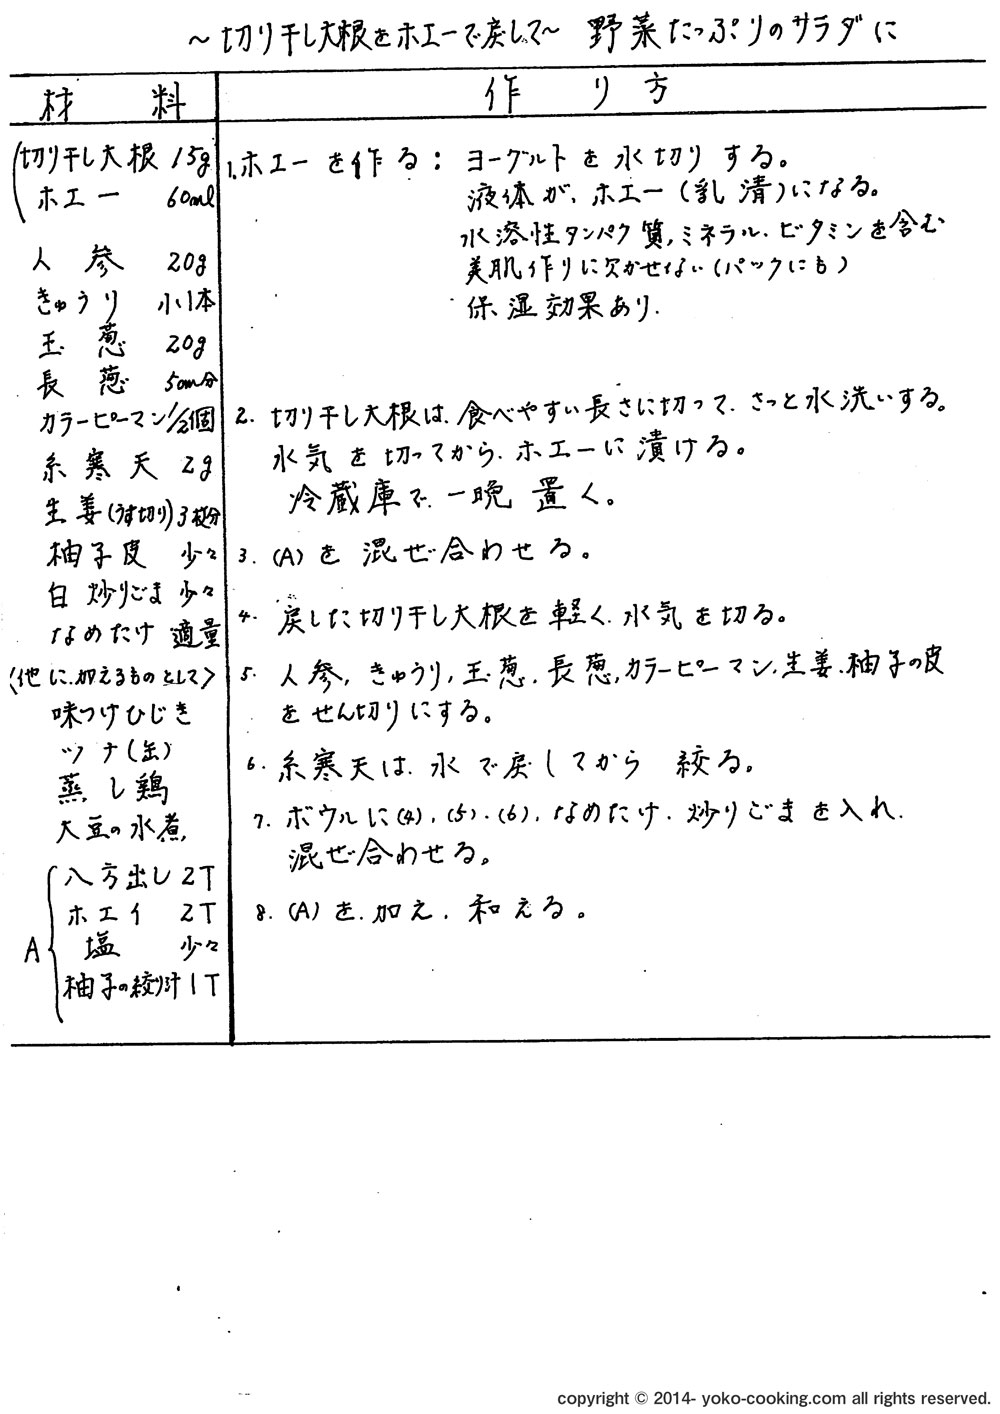 ～切り干し大根をホエーで戻して～ 野菜たっぷりのサラダに
材 料
作 り 方
切り干し大根 15g
ホエー 60ml
人参 20g
きゅうり 小1本
玉葱 20g
長葱 5cm分
カラーピーマン 1/2個
糸寒天 2g
生姜(うす切り)3枚分
柚子皮 少々
白炒りごま 少々
なめたけ 適量
〈他に加えるものとして〉
味つけひじき
ツナ(缶)
蒸し鶏
大豆の水煮
A
八方出し 2T
ホエイ 2T
塩 少々
柚子の絞り汁 1T
1.ホエーを作る: ヨーグルトを水切りする。
液体が、ホエー(乳清)になる。
水溶性タンパク質,ミネラル、ビタミンを含む
美肌作りに欠かせない(パックにも)
保湿効果あり.
2. 切り干し大根は、食べやすい長さに切って、さっと水洗いする。
水気を切ってから、ホエーに漬ける。
冷蔵庫で、一晩置く。
3. (A)を混ぜ合わせる。
4. 戻した切り干し大根を軽く、水気を切る。
5. 人参,きゅうり,玉葱,長葱,カラーピーマン,生姜、柚子の皮
をせん切りにする。
6. 糸寒天は、水で戻してから 絞る。
7. ボウルに(4)、(5)、(6)、なめたけ、炒りごまを入れ、
混ぜ合わせる。
8. (A)を、加え、和える。
copyright © 2014- yoko-cooking.com all rights reserved.